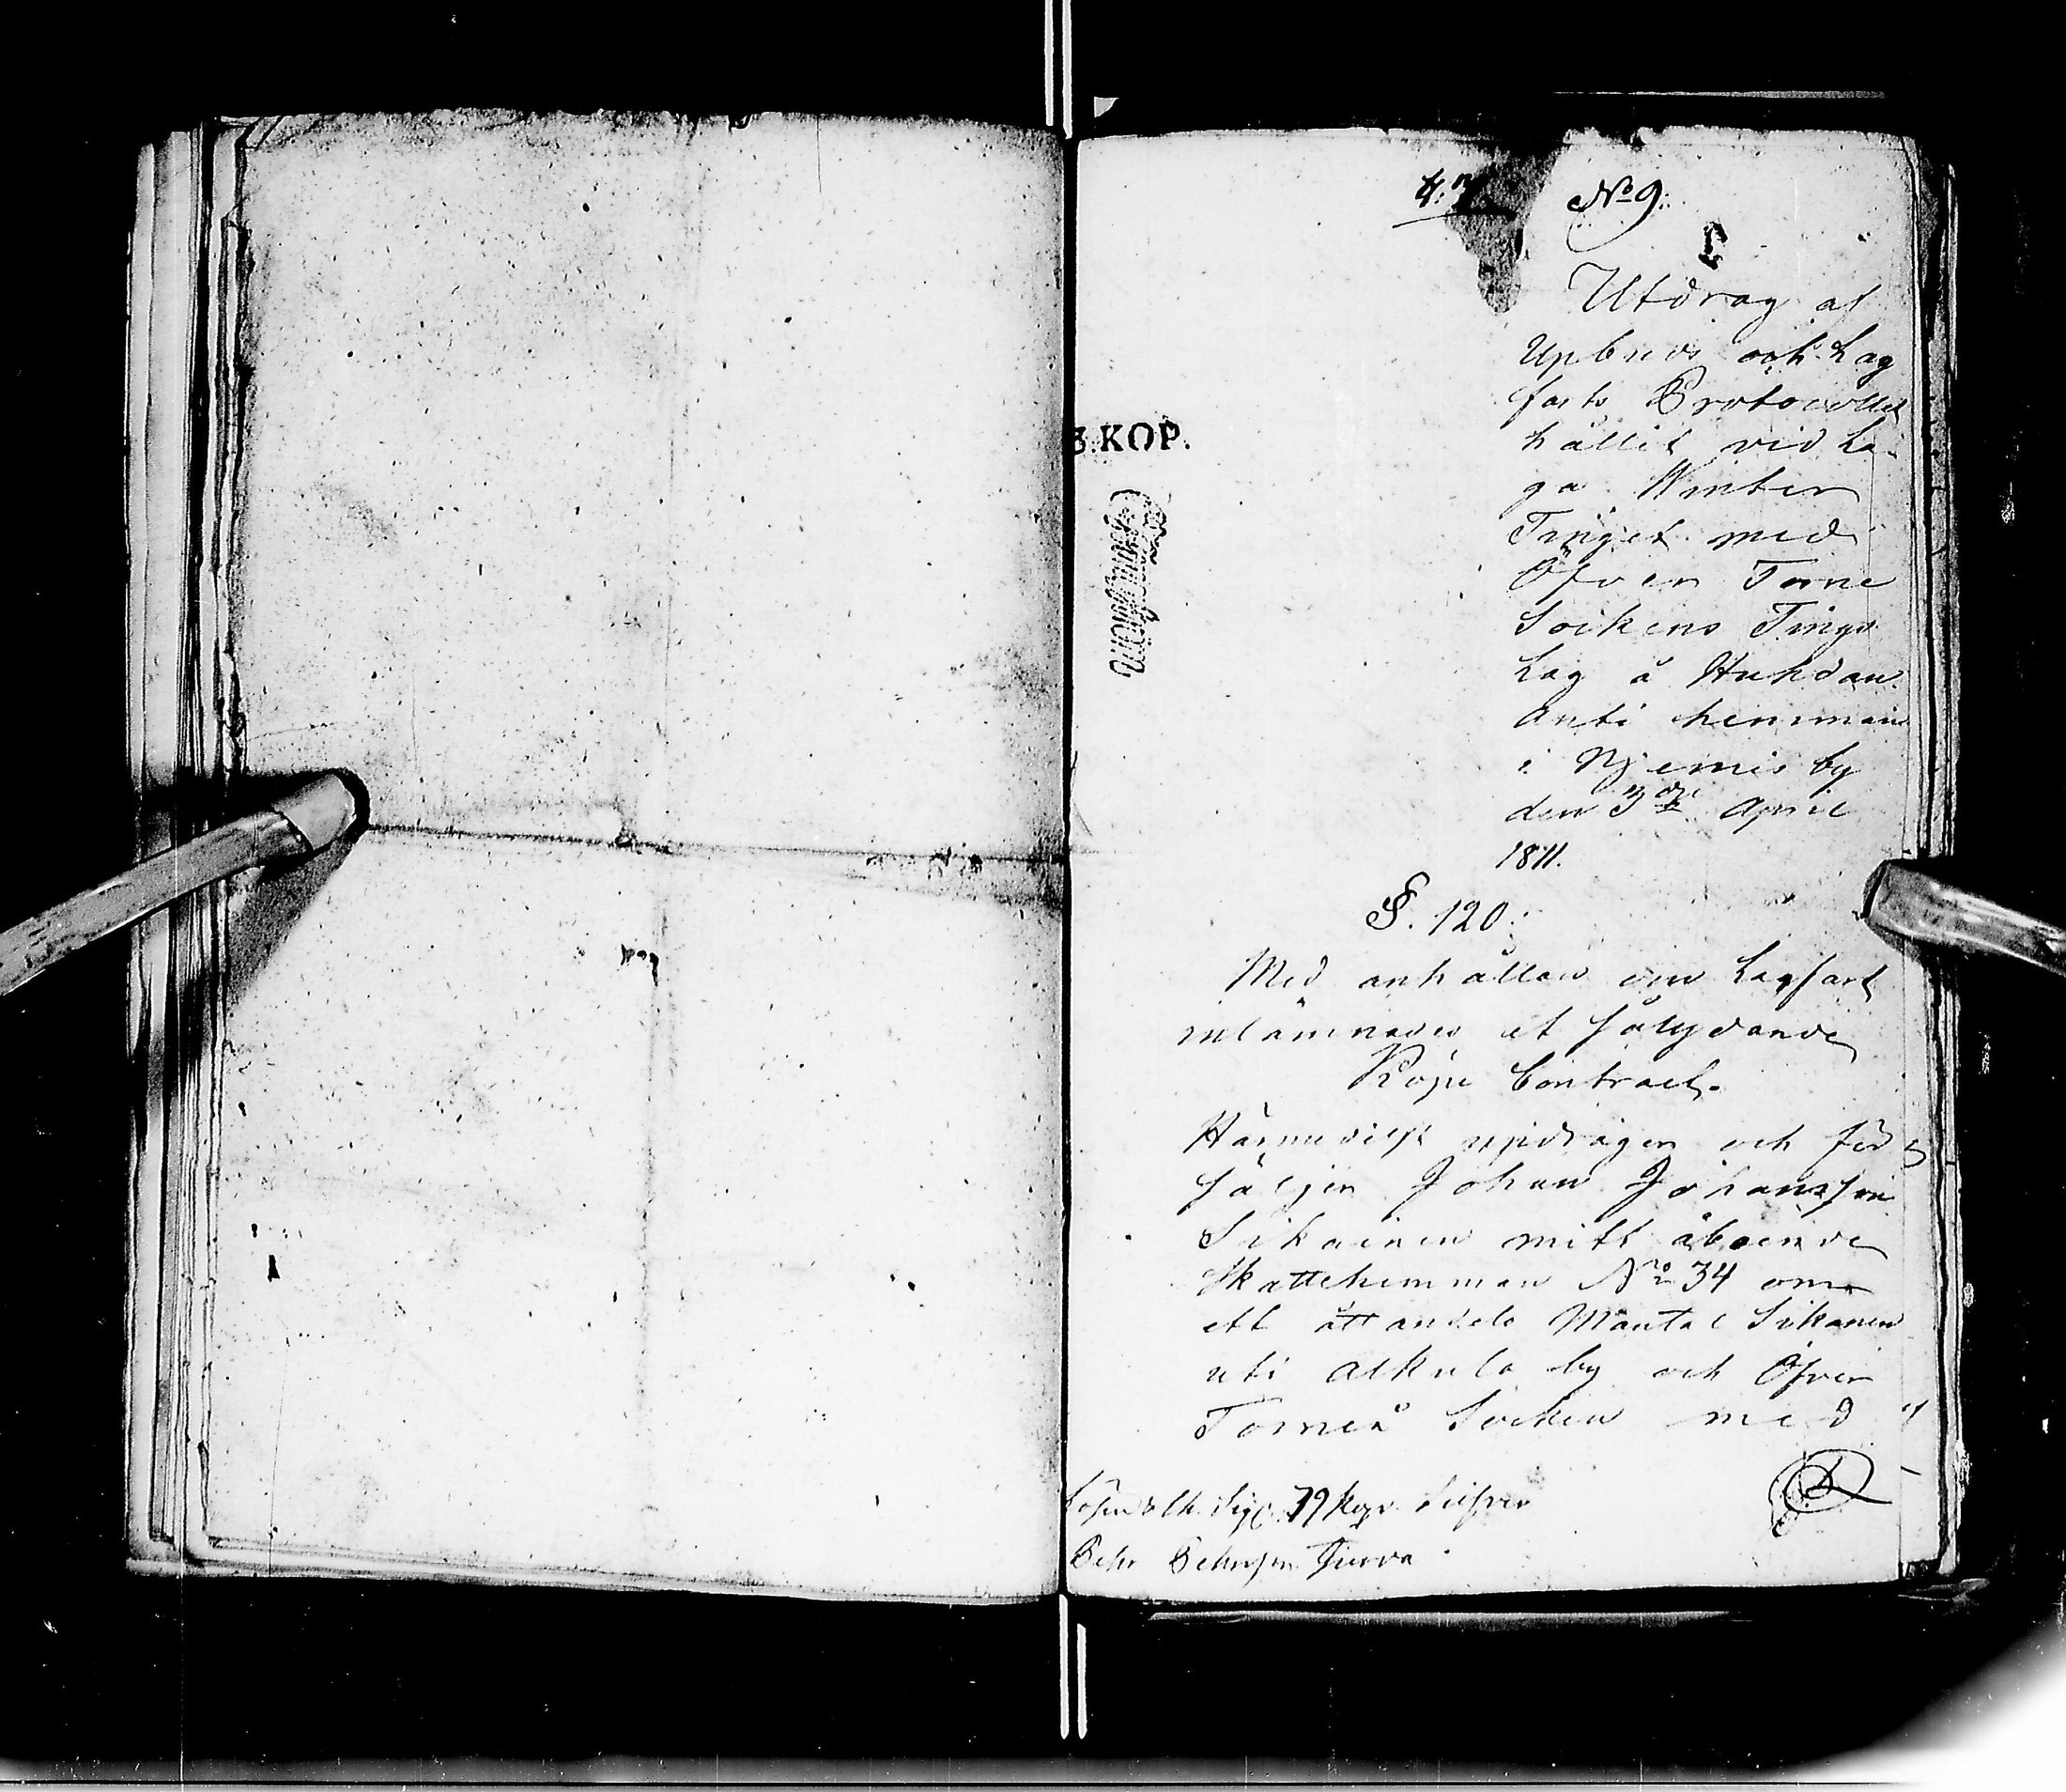 No 9.
Utdrag af
Upbuds och Lag
farts Protocollet
hållit vid La-
ga Winter
Tinget med
Öfver Torne
Sockens Tings
Lag å Huhdan
anti hemman
i Njemis by
den 3die April
1811.
KOP.
§. 120.
Med anhållan om Lagfart
inlämnades et sålydande
Köpe Contract.
Härmedelst updrager och för
säljer Johan Johansson
Sikainen mitt åboende
Skattehemman No 34 om
ett åttandels Mantal Sikanen
uti Alkula by och Öfver
Torneå Socken med
79 Kop. Silfver
Pehr Pehrsson Juova